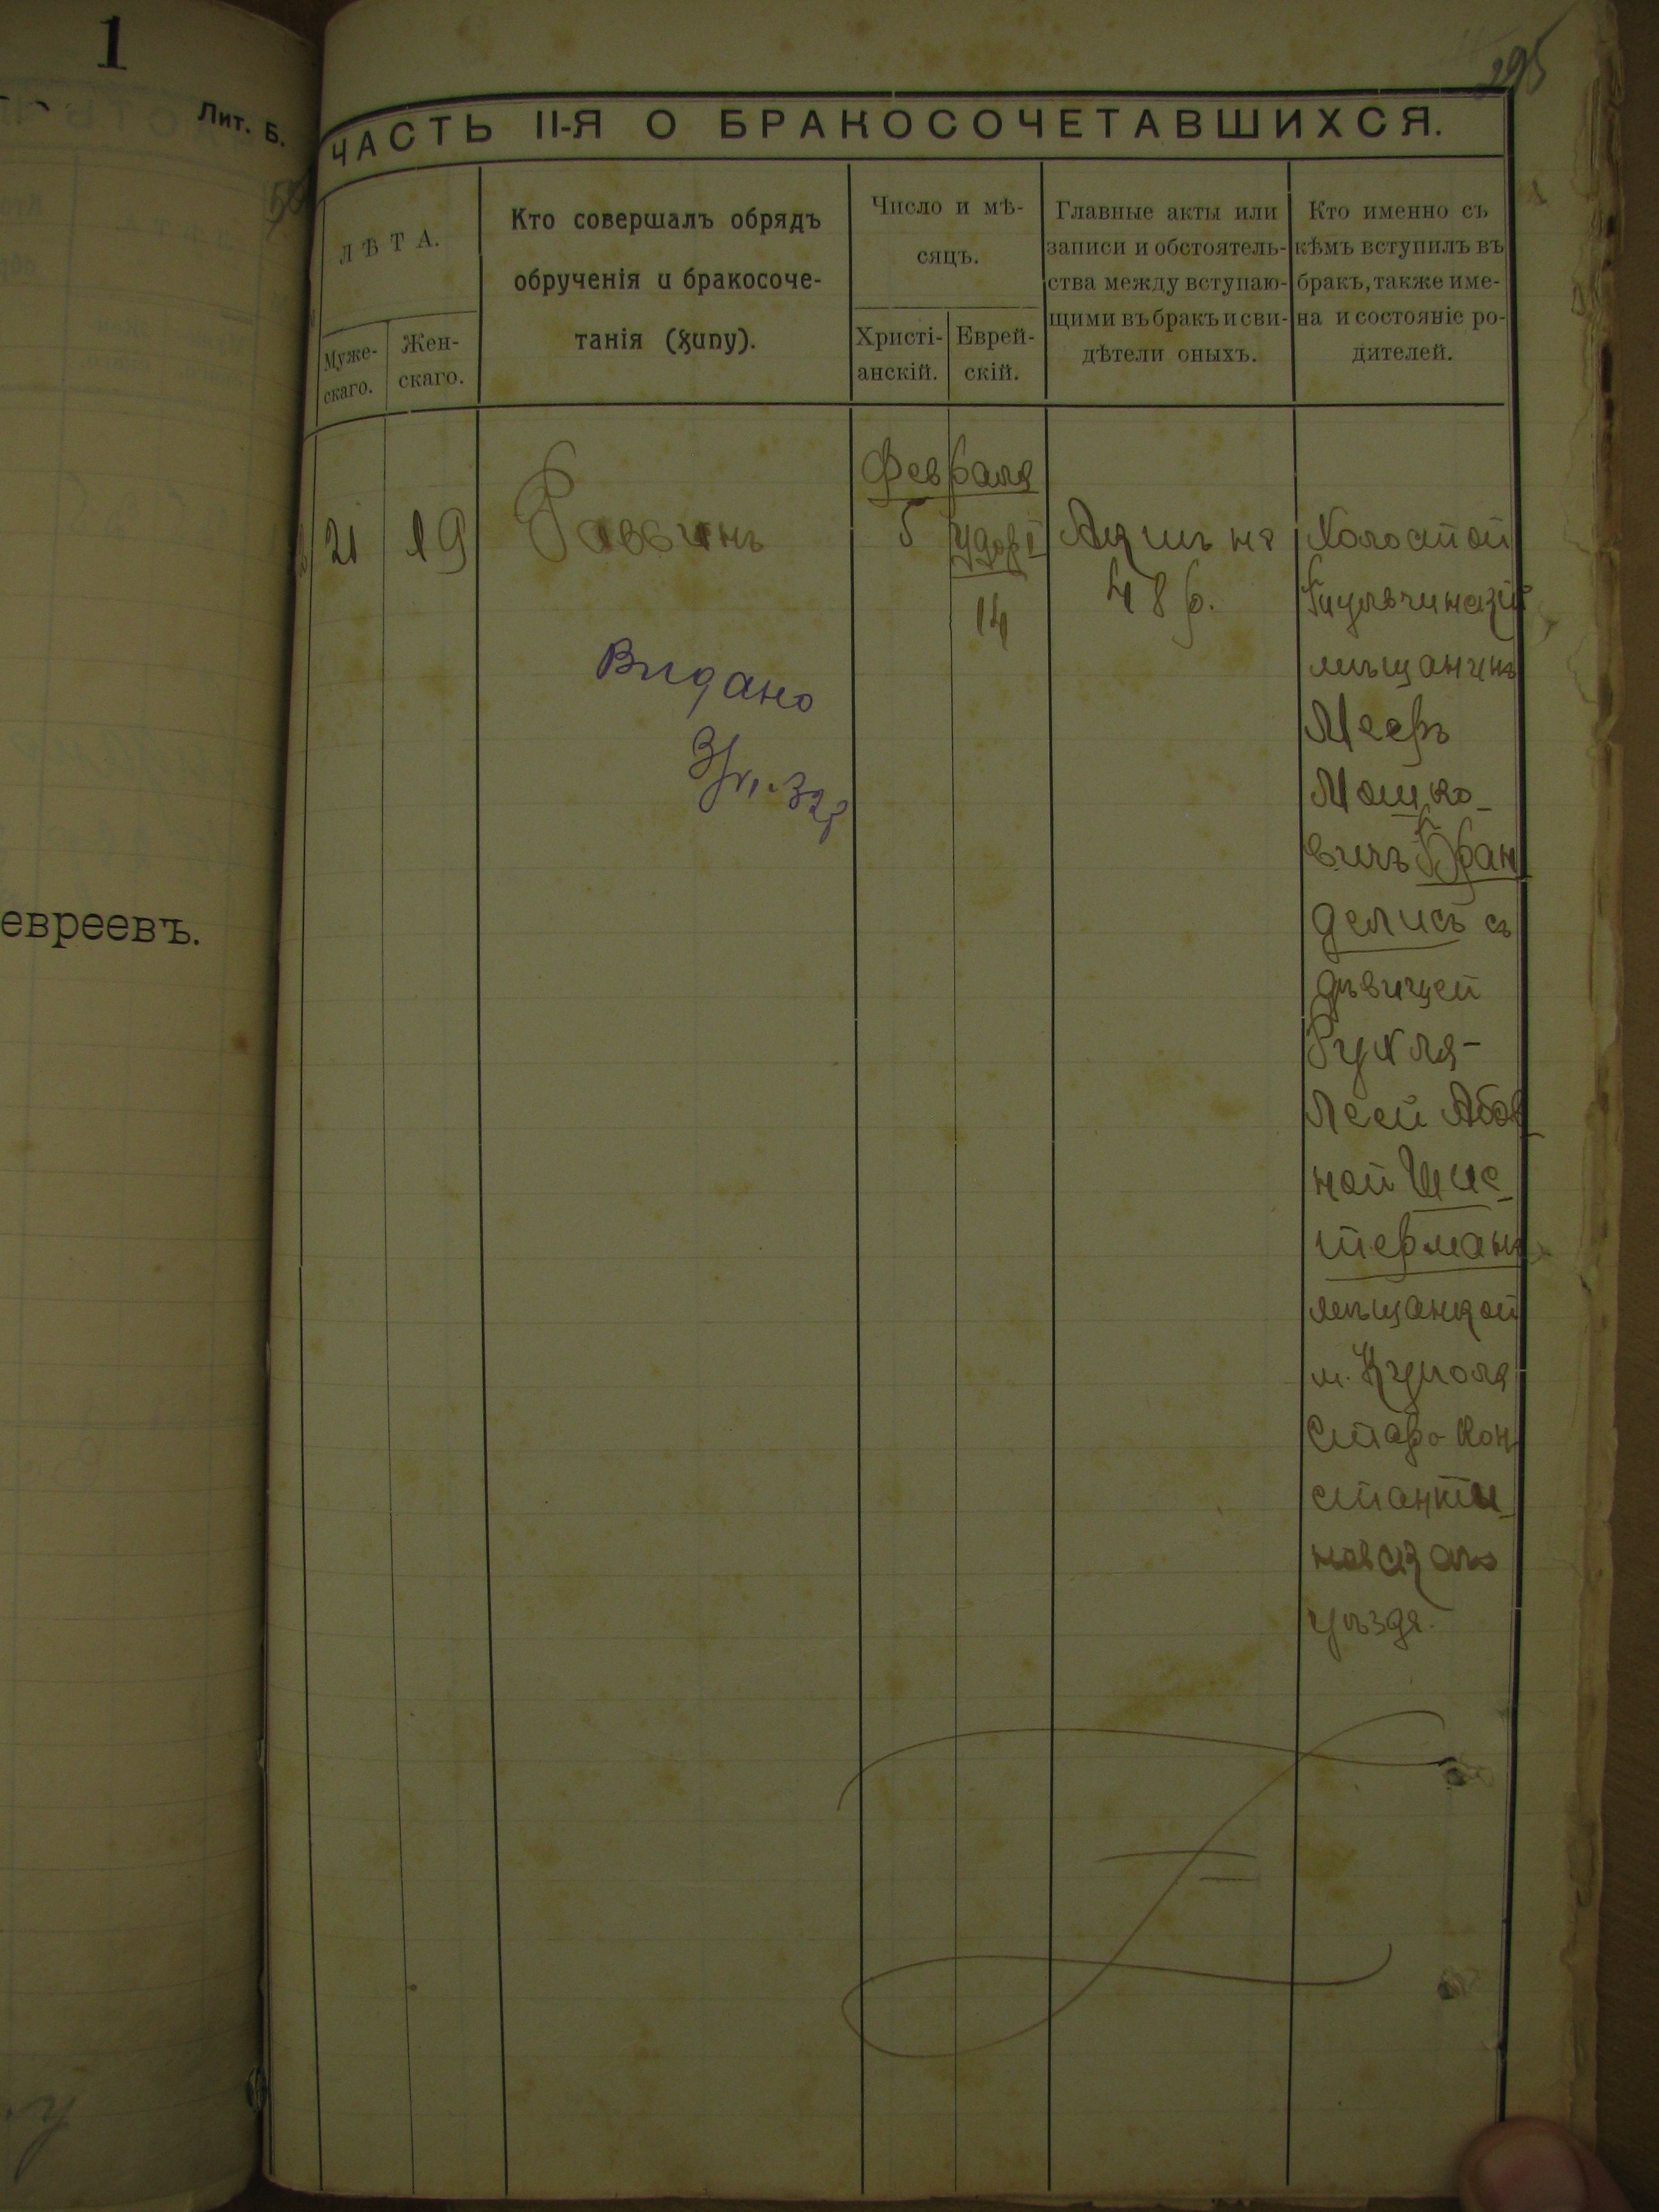 1
Лит. Б.
евреевъ.
295
ЧАСТЬ II-Я О БРАКОСОЧЕТАВШИХСЯ.
ЛѢТА.
Муже-
скаго.
Жен-
скаго.
Кто совершалъ обрядъ
обрученія и бракосоче-
танія (хупу).
Число и мѣ-
сяцъ.
Христі-
анскій.
Еврей-
скій.
Главные акты или
записи и обстоятель-
ства между вступаю-
щими въ бракъ и сви-
дѣтели оныхъ.
Кто именно съ
кѣмъ вступилъ въ
бракъ, также име-
на и состояніе ро-
дителей.
21
19
Раввинъ
Видано
Февраля
5
Удоръ I
14
Актъ на
48 р.
Холостой
мѣщанинъ
Мееръ
Мошко-
вичъ Бран
делисъ съ
дѣвицей
Рухля-
Леей Абов
ной Шис-
терманъ
мѣщанкой
м. Купеля
Старо-Кон
станти-
новскаго
уѣзда.